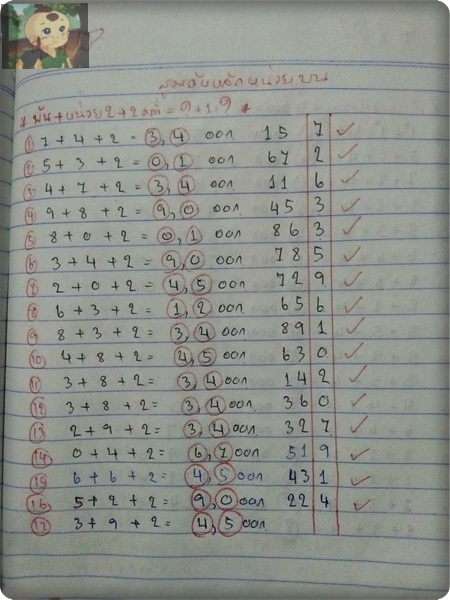 สูตรดับหลักหน่วยบน
* พัน + หน่วย 2 + 2 คงที่ = ? + 1 ? *
① 7 + 4 + 2 = 3, 4 ออก 15 7 ✓
② 5 + 3 + 2 = 0, 1 ออก 67 2 ✓
③ 4 + 7 + 2 = 3, 4 ออก 11 6 ✓
④ 9 + 8 + 2 = 9, 0 ออก 45 3 ✓
⑤ 8 + 0 + 2 = 0, 1 ออก 86 3 ✓
⑥ 3 + 4 + 2 = 9, 0 ออก 78 5 ✓
2 + 0 + 2 = 4, 5 ออก 72 9 ✓
⑧ 6 + 3 + 2 = 1, 2 ออก 65 6 ✓
⑨ 8 + 3 + 2 = 3, 4 ออก 89 1 ✓
⑩ 4 + 8 + 2 = 4, 5 ออก 63 0 ✓
⑪ 3 + 8 + 2 = 3, 4 ออก 14 2 ✓
⑫ 3 + 8 + 2 = 3, 4 ออก 36 0 ✓
⑬ 2 + 9 + 2 = 3, 4 ออก 32 7 ✓
⑭ 0 + 4 + 2 = 6, 7 ออก 51 9 ✓
⑮ 6 + 6 + 2 = 4, 5 ออก 43 1 ✓
⑯ 5 + 2 + 2 = 9, 0 ออก 22 4 ✓
⑰ 3 + 9 + 2 = 4, 5 ออก